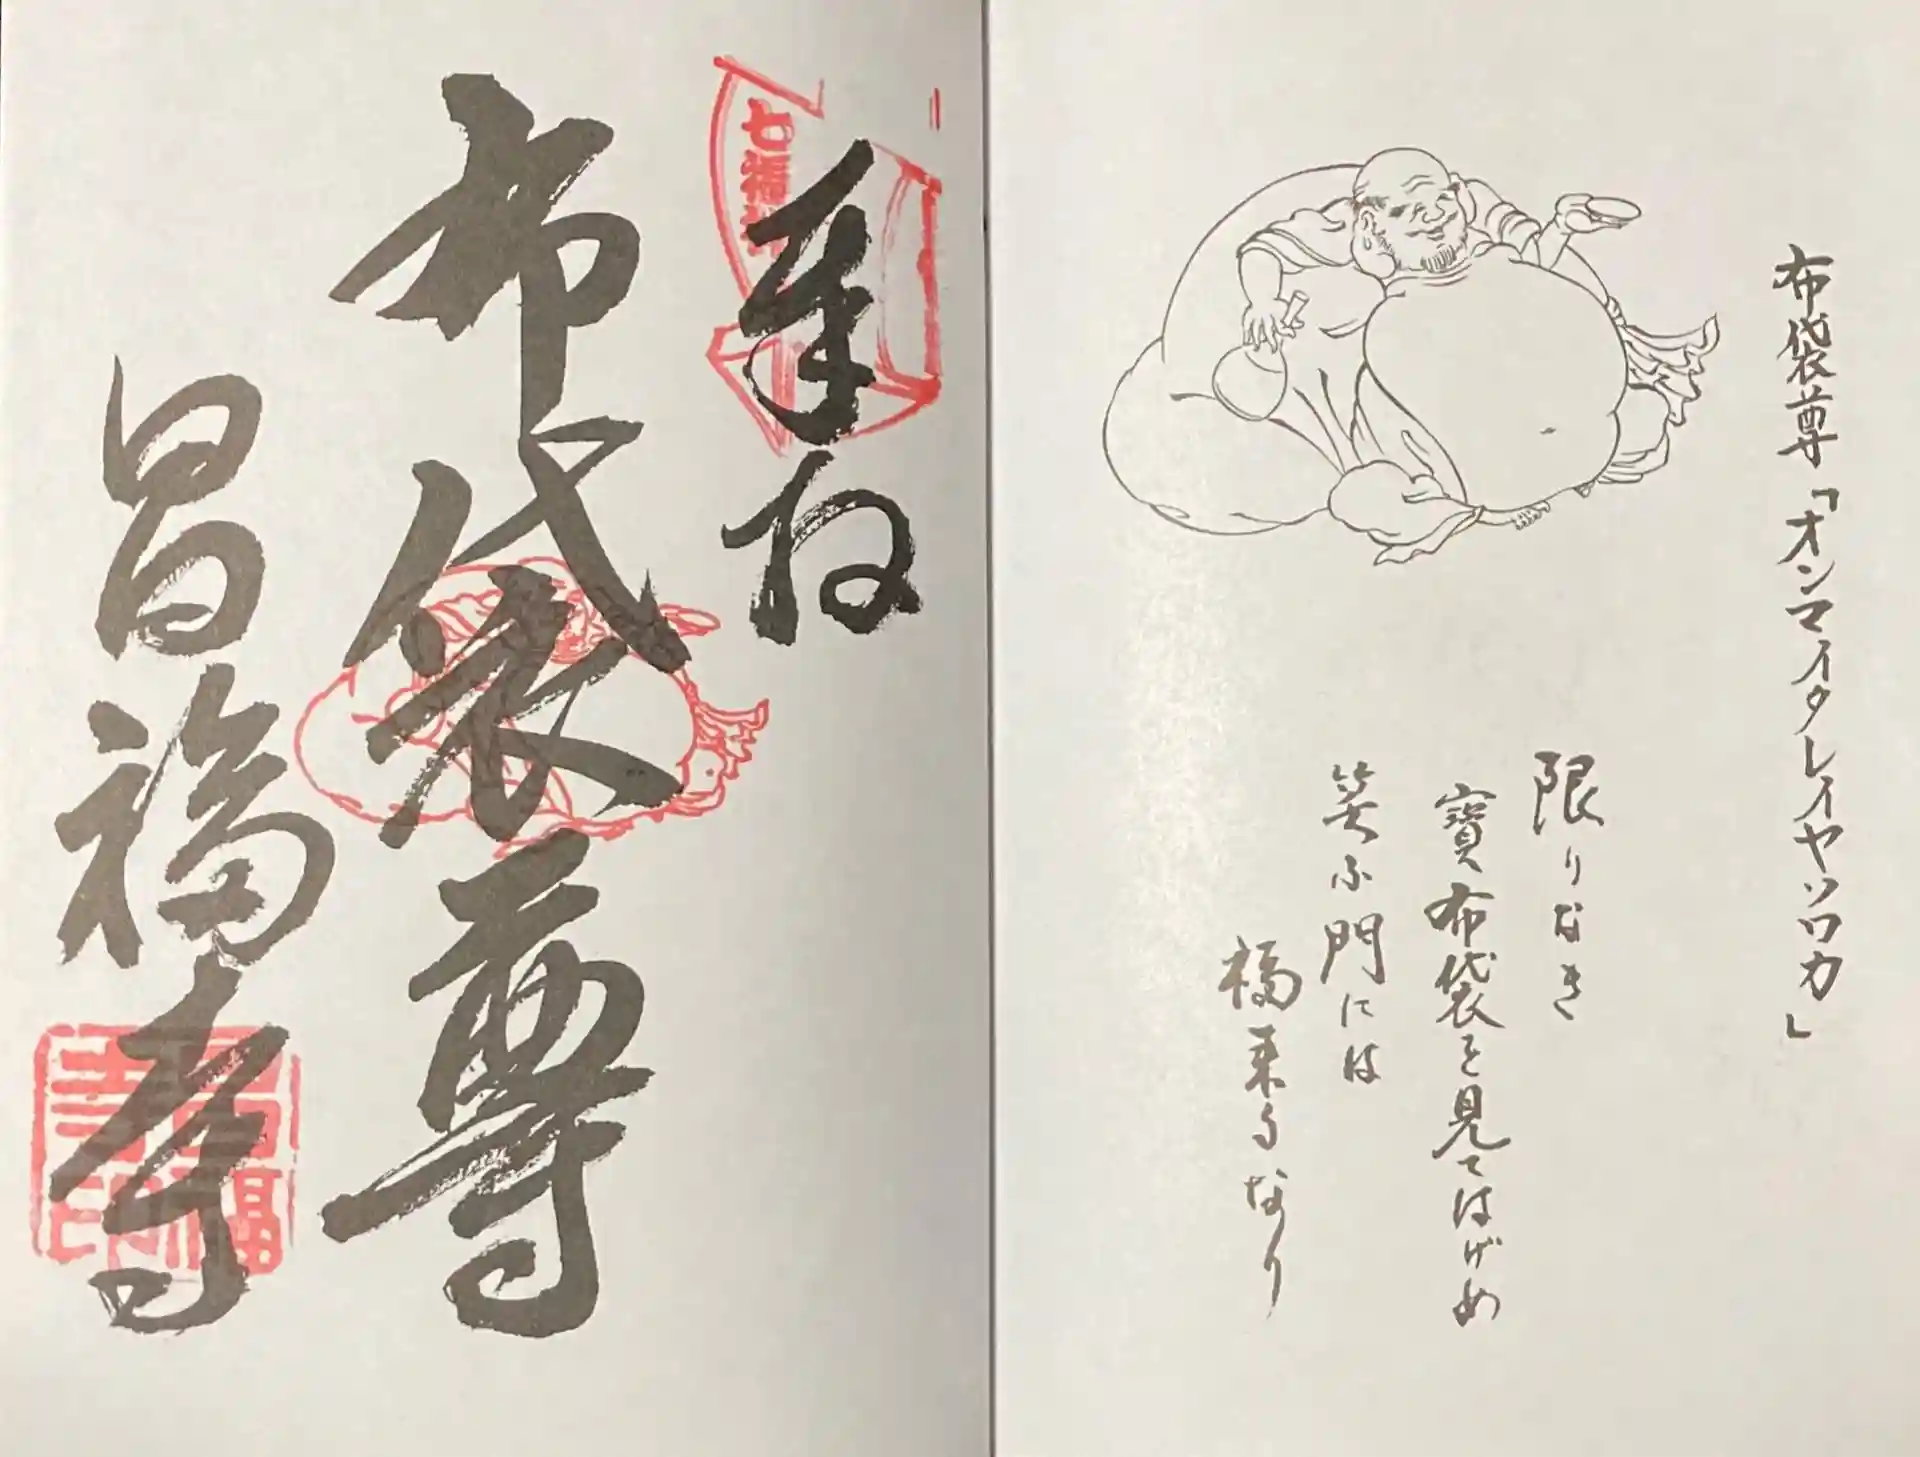 布袋尊「オンマイタレイヤソロカ」
限りなき
寶布袋を見てはげめ
笑ふ門には
福来るなり
奉拝
七福神
布袋尊
昌福寺
昌福寺印